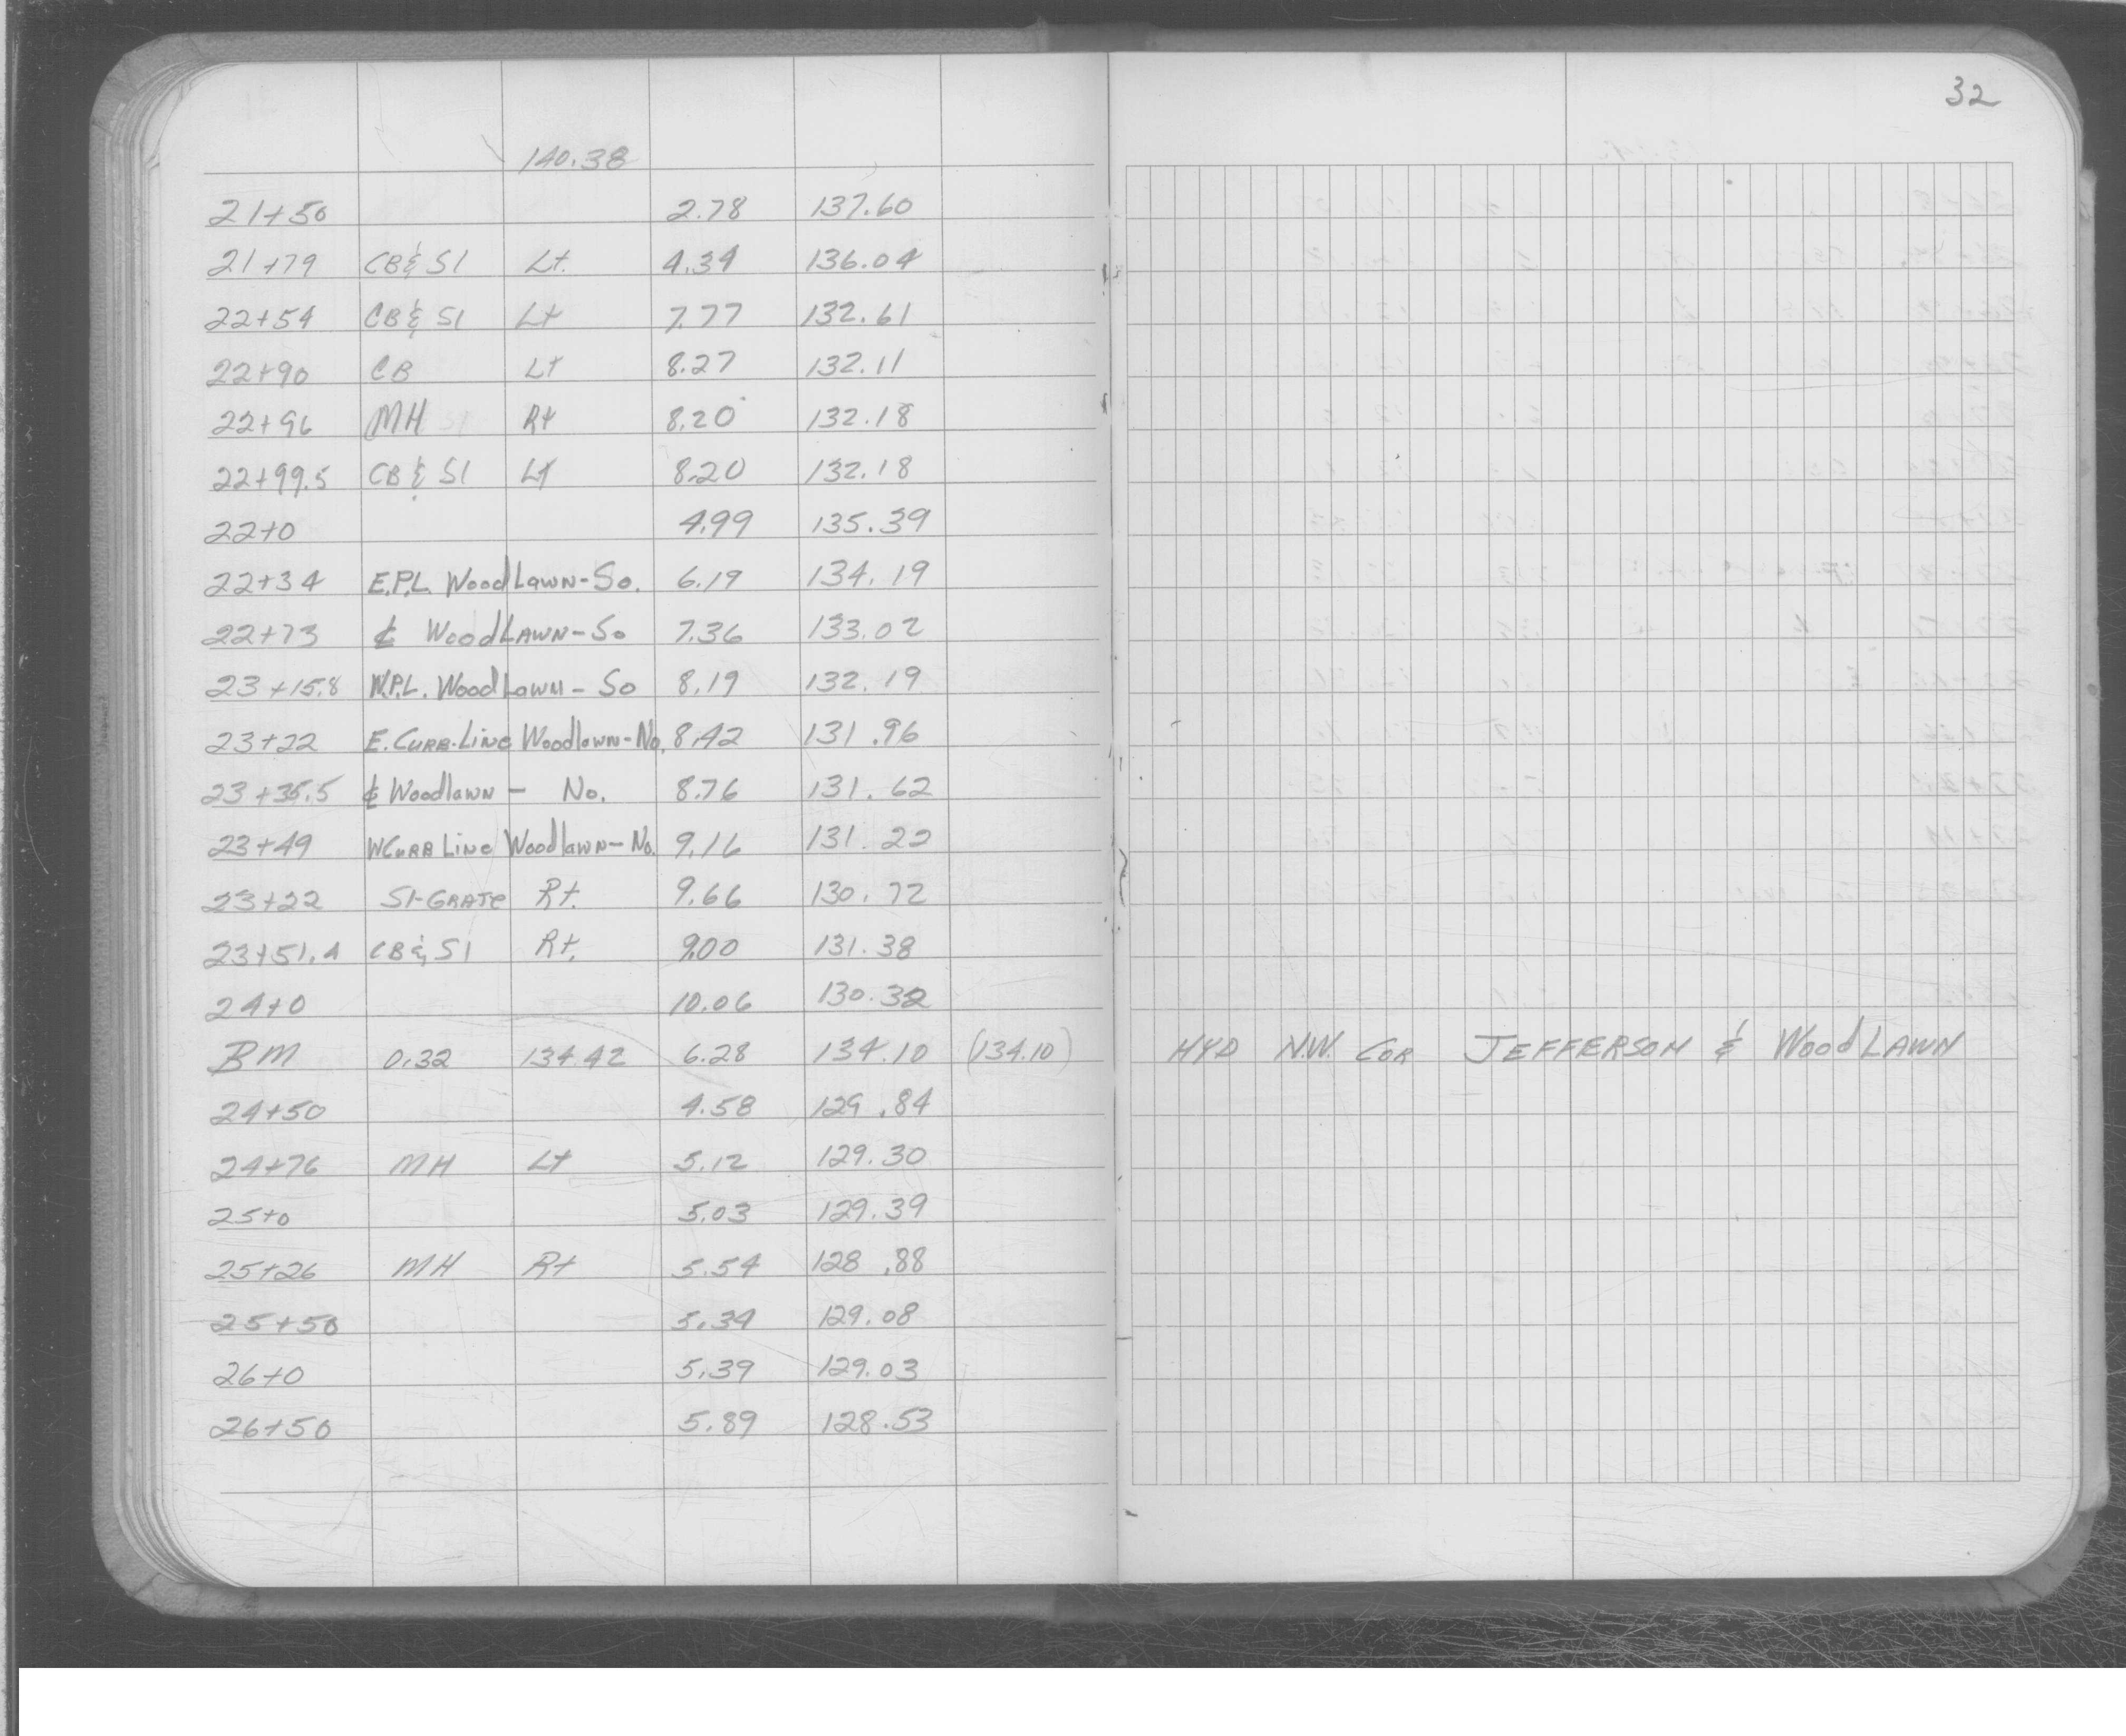 32
140.38
21+50 2.78 137.60
21+79 CB & SI Lt. 4.34 136.04
22+54 CB & SI Lt 7.77 132.61
22+90 CB Lt 8.27 132.11
22+96 MH Rt 8.20 132.18
22+99.5 CB & SI Lt 8.20 132.18
22+0 4.99 135.39
22+34 E.P.L. WoodLawn-So. 6.19 134.19
22+73 ℄ WoodLAWN-So 7.36 133.02
23+15.8 W.P.L. WoodLawn-So 8.19 132.19
23+22 E. Curb-Line Woodlawn-No. 8.42 131.96
23+35.5 ℄ Woodlawn - No. 8.76 131.62
23+49 W Curb Line Woodlawn-No. 9.16 131.22
23+22 SI-GRATE Rt. 9.66 130.72
23+51.4 CB & SI Rt. 9.00 131.38
24+0 10.06 130.32
BM 0.32 134.42 6.28 134.10 (134.10) HYD N.W. COR JEFFERSON & WoodLAWN
24+50 4.58 129.84
24+76 MH Lt 5.12 129.30
25+0 5.03 129.39
25+26 MH Rt 5.54 128.88
25+50 5.34 129.08
26+0 5.39 129.03
26+50 5.89 128.53